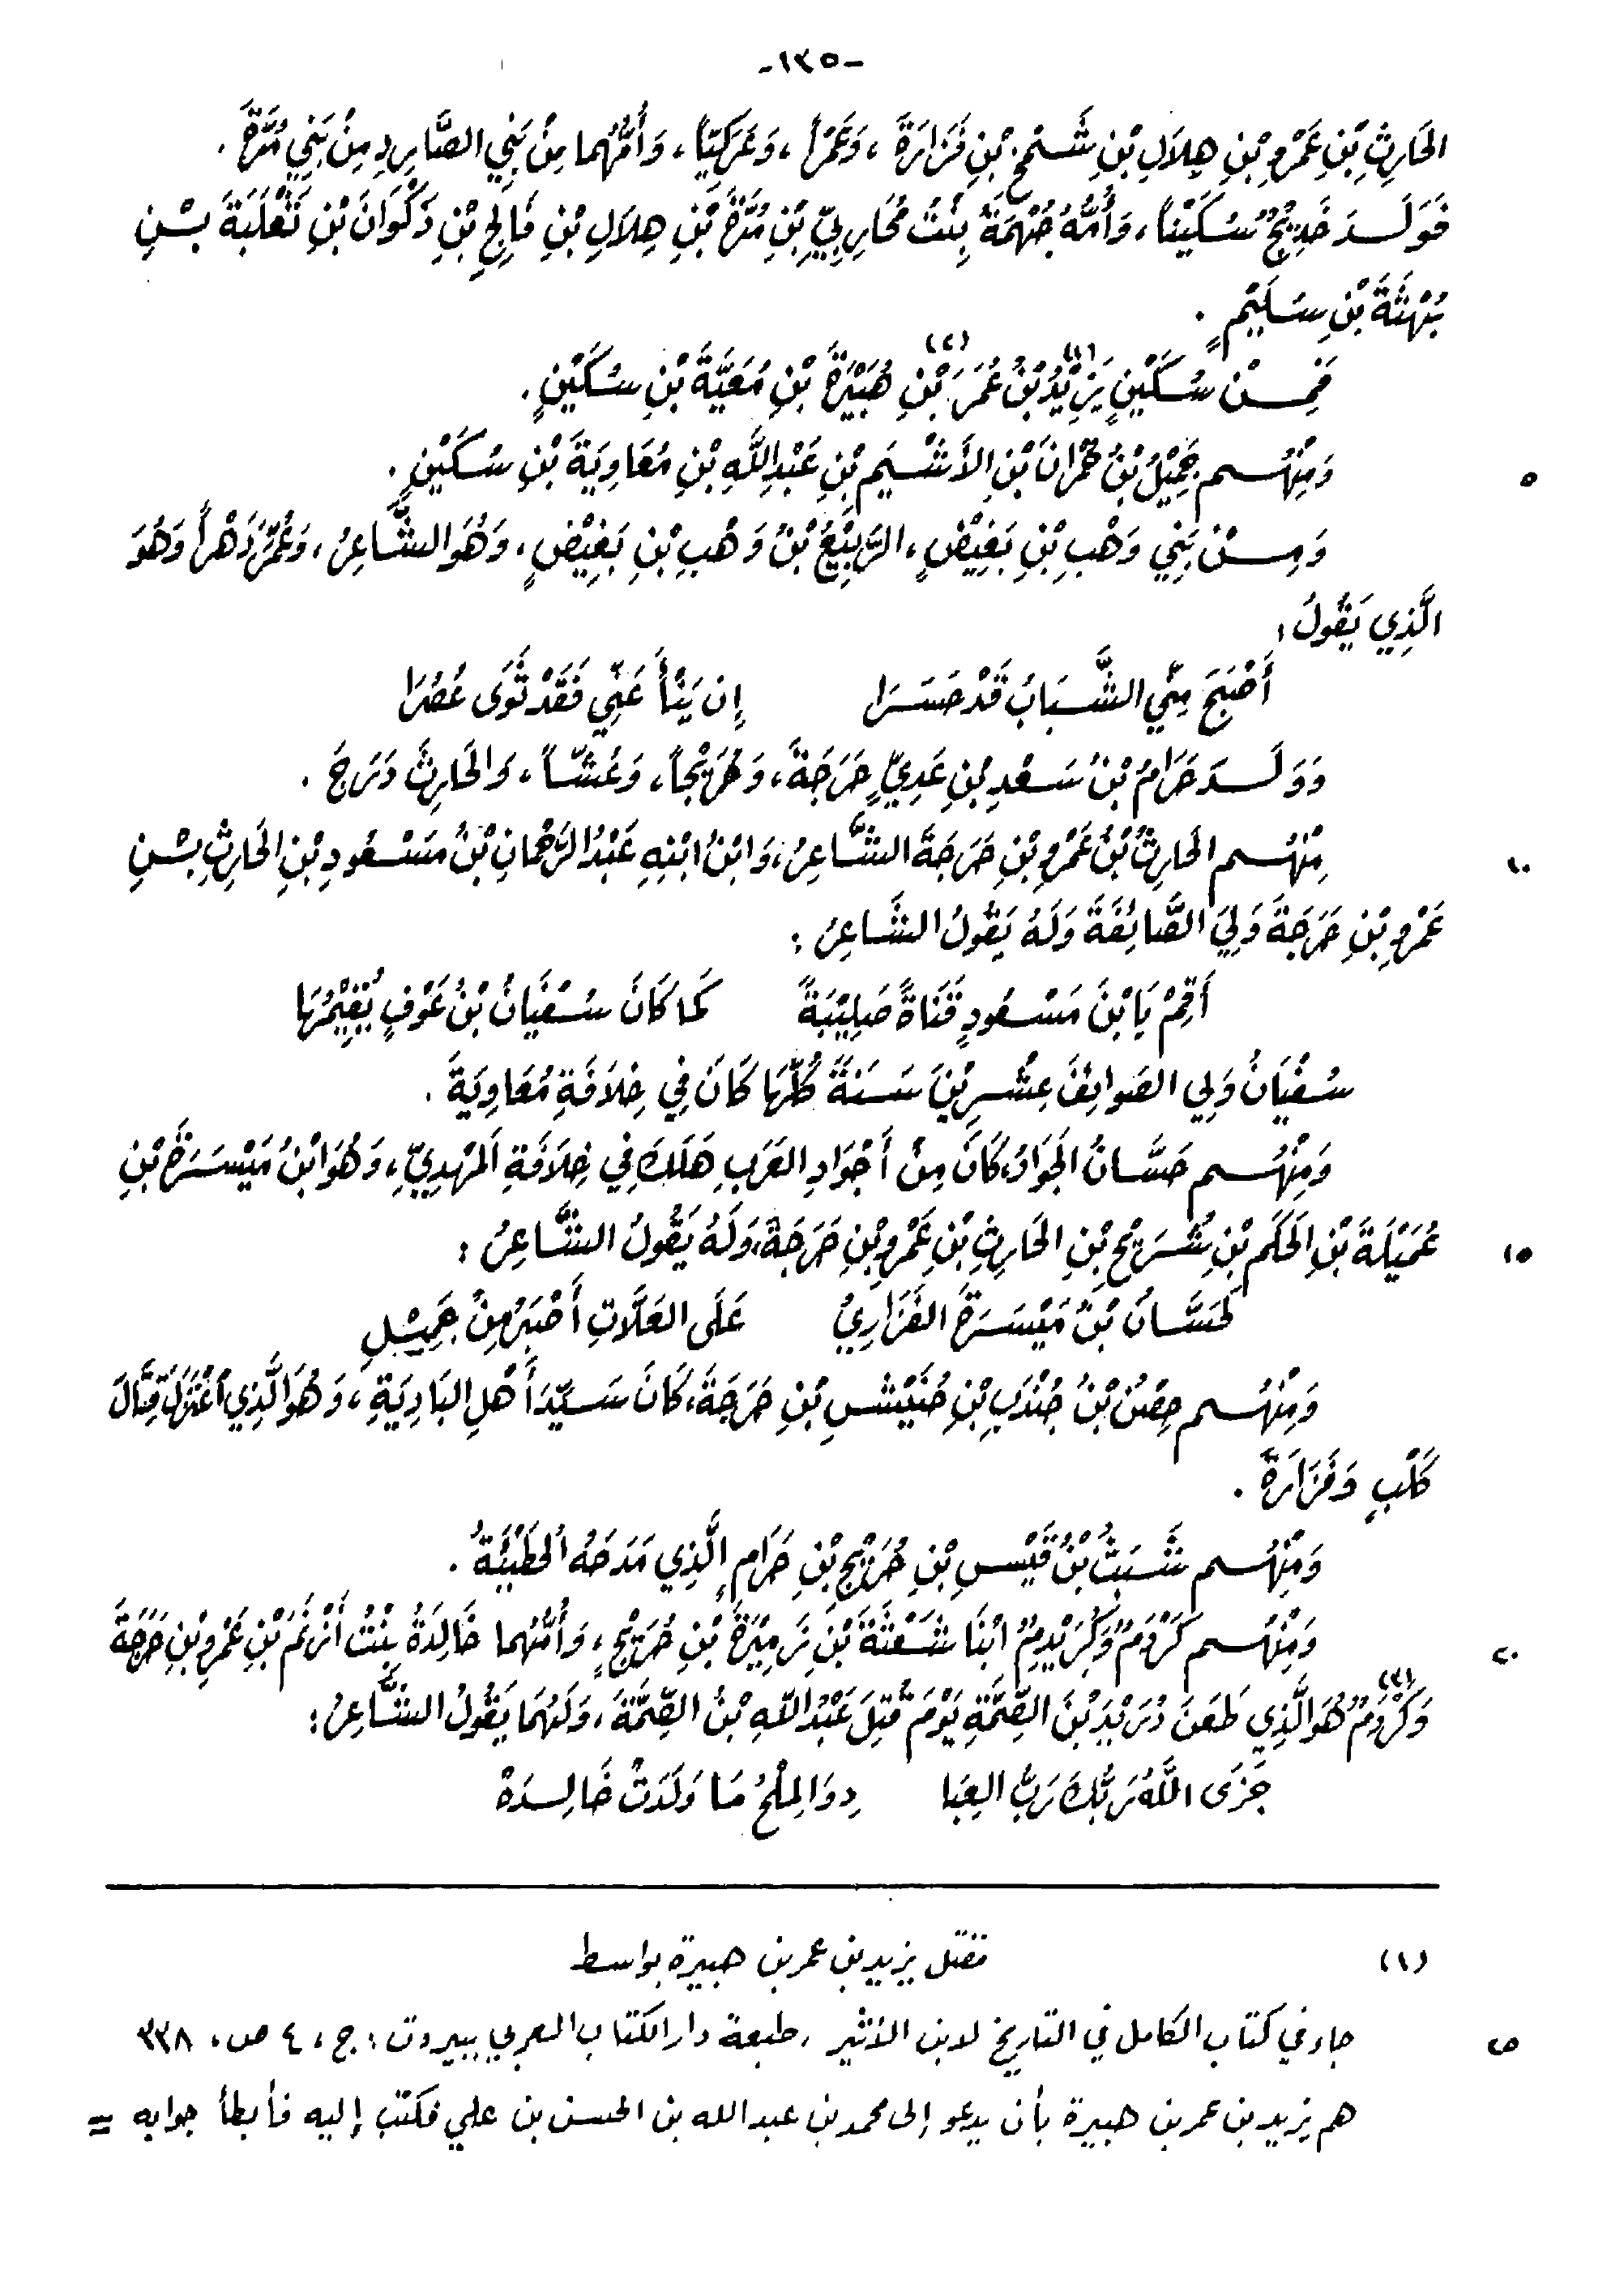 -١٣٥-
الحَارِثِ بْنِ عَمْرِو بْنِ هِلَالِ بْنِ شَمْخِ بْنِ فَزَارَةَ ، وَعَمْرَاً ، وَعَرَكِيّاً ، وَأُمُّهُما مِنْ بَنِي الصَّارِدِ مِنْ بَنِي مُرَّةَ .
فَوَلَدَ خَدِيْجٌ سُكَيْناً ، وَأُمُّهُ جُهْمَةُ بِنْتُ مُحَارِبِيِّ بْنِ مُرَّةَ بْنِ هِلَالِ بْنِ فَالِجِ بْنِ ذَكْوَانَ بْنِ ثَعْلَبَةَ بْنِ
بُهْثَةَ بْنِ سُلَيْمٍ .
فَمِنْ سُكَيْنٍ يَزِيْدُ (١) بْنُ عُمَرَ بْنِ (٢) هُبَيْرَةَ بْنِ مُعَيَّةَ بْنِ سُكَيْنٍ .
وَمِنْهُم جَمِيْلُ بْنُ حُمْرَانَ بْنِ الأَشْيَمِ بْنِ عَبْدِ اللَّهِ بْنِ مُعَاوِيَةَ بْنِ سُكَيْنٍ . ٥
وَمِنْ بَنِي وَهْبِ بْنِ بَغِيْضٍ ، الرَّبِيْعُ بْنُ وَهْبِ بْنِ بَغِيْضٍ ، وَهُوَ الشَّاعِرُ ، وَعُمِّرَ دَهْراً وَهُوَ
الَّذِي يَقُولُ :
أَصْبَحَ مِنِّي الشَّبَابُ قَدْ حَسَرَا إِن يَنْأَ عَنِّي فَقَدْ ثَوَى عُصُرَا
وَوَلَدَ حَرَامُ بْنُ سَعْدِ بْنِ عَدِيٍّ حَرَجَةَ ، وَخُرَيْجاً ، وَعُشّاً ، وَالحَارِثَ دَرَجَ .
مِنْهُم الحَارِثُ بْنُ عَمْرِو بْنِ حَرَجَةَ الشَّاعِرُ ، وَابْنُ ابْنِهِ عَبْدُ الرَّحْمَانِ بْنُ مَسْعُودِ بْنِ الحَارِثِ بْنِ ١٠
عَمْرِو بْنِ حَرَجَةَ وَلِيَ الصَّائِفَةَ وَلَهُ يَقُولُ الشَّاعِرُ :
أَقِمْ يَا بْنَ مَسْعُودٍ قَنَاةً صَلِيْبَةً كَمَا كَانَ سُفْيَانُ بْنُ عَوْفٍ يُقِيْمُهَا
سُفْيَانُ وَلِي الصَوائِفَ عِشْرِيْنَ سَنَةً كُلَّهَا كَانَ فِي خِلَافَةِ مُعَاوِيَةَ .
وَمِنْهُم حَسَّانُ الجَوَادُ ، كَانَ مِنْ أَجْوَادِ العَرَبِ هَلَكَ فِي خِلَافَةِ المَهْدِيِّ ، وَهُوَ ابْنُ مَيْسَرَةَ بْنِ
عُمَيْلَةَ بْنِ الحَكَمِ بْنِ شُرَيْحِ بْنِ الحَارِثِ بْنِ عَمْرِو بْنِ حَرَجَةَ ، وَلَهُ يَقُولُ الشَّاعِرُ : ١٥
لَحَسَّانُ بْنُ مَيْسَرَةَ الفَزَارِيُّ عَلَى العَلَّاتِ أَصْبَرُ مِنْ جَمِيْلِ
وَمِنْهُم حِصْنُ بْنُ جُنْدَبِ بْنِ خُنَيْشِ بْنِ حَرَجَةَ ، كَانَ سَيِّدَ أَهْلِ البَادِيَةِ ، وَهُوَ الَّذِي اعْتَزَلَ قِتَالَ
كَلْبٍ وَفَزَارَةَ .
وَمِنْهُم شَبَثُ بْنُ قَيْسِ بْنِ خُرَيْجِ بْنِ حَرَامٍ الَّذِي مَدَحَهُ الحُطَيْئَةُ .
وَمِنْهُم كَرْدَمٌ وَكُرَيْدِمٌ ابْنَا شَعْثَةَ بْنِ زَمِيْرَةَ بْنِ خُرَيْجٍ ، وَأُمُّهُما خَالِدَةُ بِنْتُ أَرْنَمَ بْنِ عَمْرِو بْنِ حَرَجَةَ ٢٠
وَكَرْدَمٌ (٣) هُوَ الَّذِي طَعَنَ دُرَيْدَ بْنَ الصِّمَّةِ يَوْمَ قُتِلَ عَبْدُ اللَّهِ بْنُ الصِّمَّةَ ، وَلَهُمَا يَقُولُ الشَّاعِرُ :
جَزَى اللَّهُ رَبُّكَ رَبُّ العِبَا دِ وَالمِلْحُ مَا وَلَدَتْ خَالِدَهْ
(١) مقتل يزيد بن عمر بن هبيرة بواسط
جاء في كتاب الكامل في التاريخ لابن الأثير ، طبعة دار الكتاب العربي ببيروت : ج ، ٤ ص ، ٣٣٨ ٢٥
هم يزيد بن عمر بن هبيرة بأن يدعو إلى محمد بن عبد الله بن الحسن بن علي فكتب إليه فأبطأ جوابه =